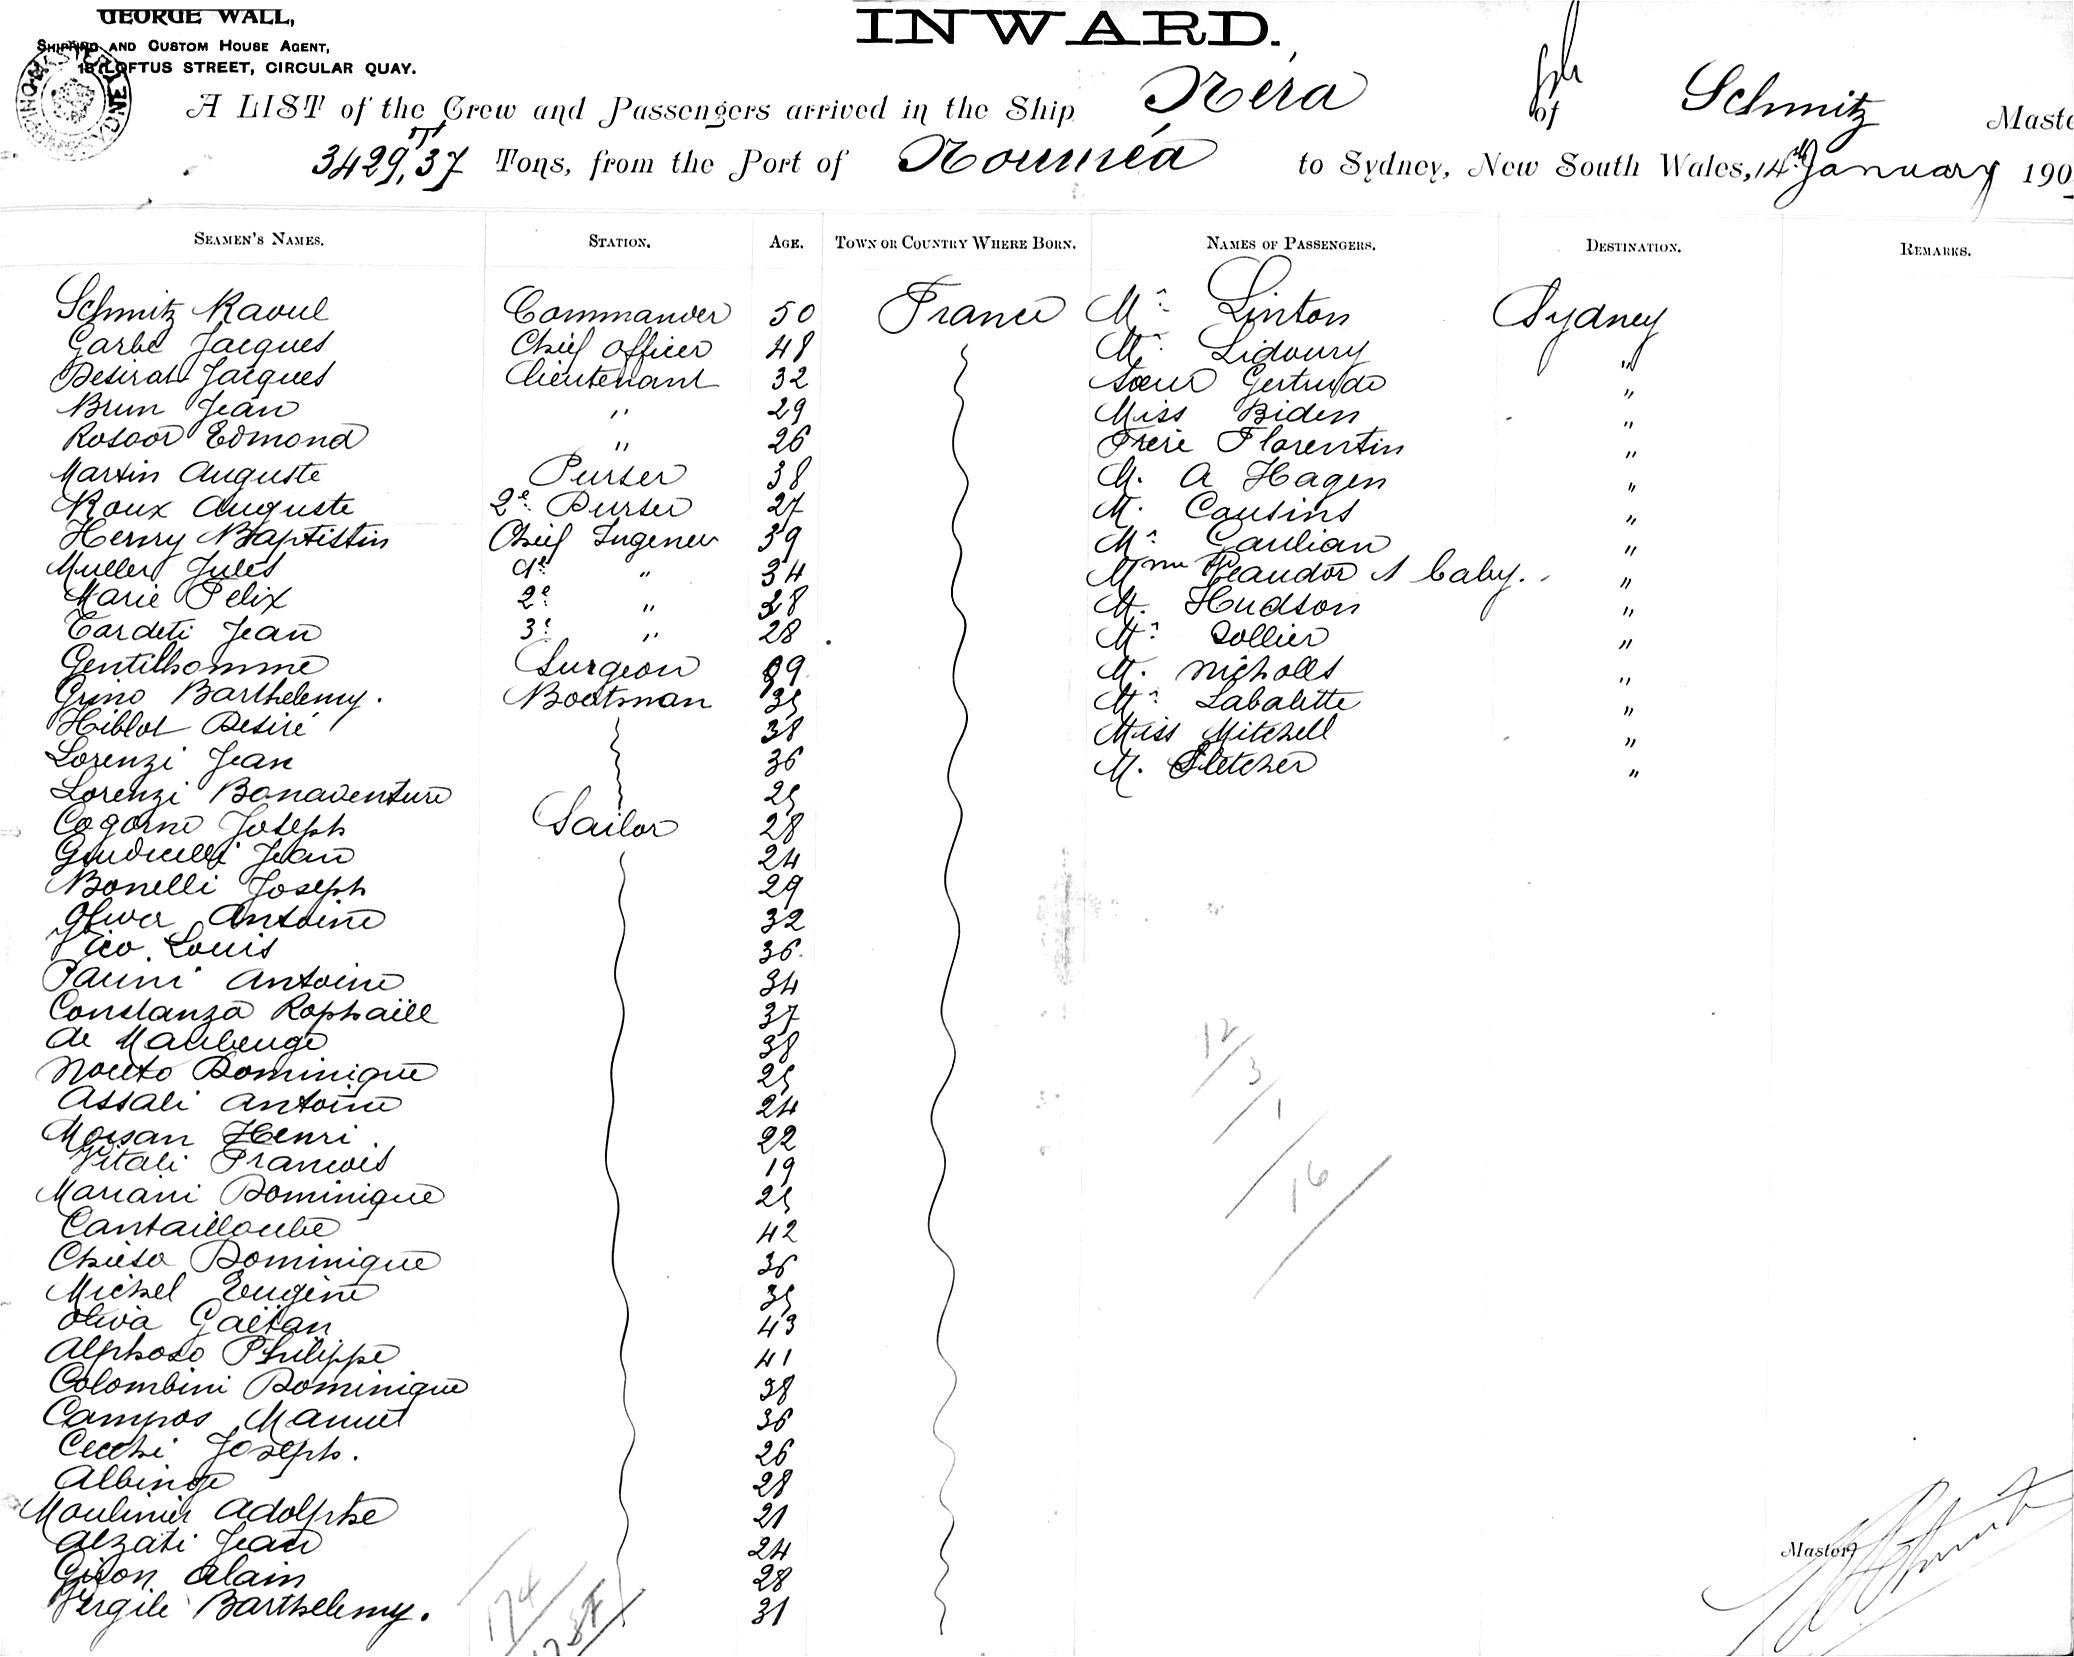 GEORGE WALL,
SHIPPING AND CUSTOM HOUSE AGENT,
LOFTUS STREET, CIRCULAR QUAY.
INWARD.
A LIST of the Crew and Passengers arrived in the Ship Néra of Schmitz Maste
3429,37 Tons, from the Port of Nouméa to Sydney, New South Wales, 14th January 190
SEAMEN'S NAMES. STATION. AGE. TOWN OR COUNTRY WHERE BORN. NAMES OF PASSENGERS. DESTINATION. REMARKS.
Schmitz Raoul Commander 50 France Mr Linton Sydney
Garbe Jacques Chief Officer 48 Mr Lidoury "
Desirat Jacques Lieutenant 32 Sœur Gertrude "
Brun Jean " 29 Miss Biden "
Rosoor Edmond " 26 Frère Florentin "
Martin Auguste Purser 38 M. A Hagen "
Roux Auguste 2e Purser 27 M. Cousins "
Henry Baptistin Chief Ingeneer 39 Mr "
Muller Jules 1e " 34 Mme & baby. "
Marie Felix 2e " 38 M. Hudson "
Tardeti Jean 3e " 28 Mr Sollier "
Gentilhomme Surgeon 39 M. Nicholls "
Grino Barthelemy. Bootsman 35 Mr Labalette "
Hiblot Desiré 38 Miss Mitchell "
Lorenzi Jean 36 M. Fletcher "
Lorenzi Bonaventure 25
Cogorno Joseph Sailor 28
Giudicelli Jean 24
Bonelli Joseph 29
Oliva Antoine 32
Louis 36.
Parini Antoine 34
Constanza Raphaëll 37
de Maubeuge 38
Dominique 25
Assali Antoine 24
Moisan Henri 22
Vitali Francois 19
Mariani Dominique 25
Cantailloube 42
Chiesa Dominique 36
Michel Eugène 35
Oliva Gaëtan 43
Alphoso Philippe 41
Colombini Dominique 38
Campos Manuel 36
Cecchi Joseph. 26
Albinge 28
Moulinier Adolphe 21
Alzati Jean 24
Alain 28
Virgile Barthelemy. 31
12
3
1
16
174
Master